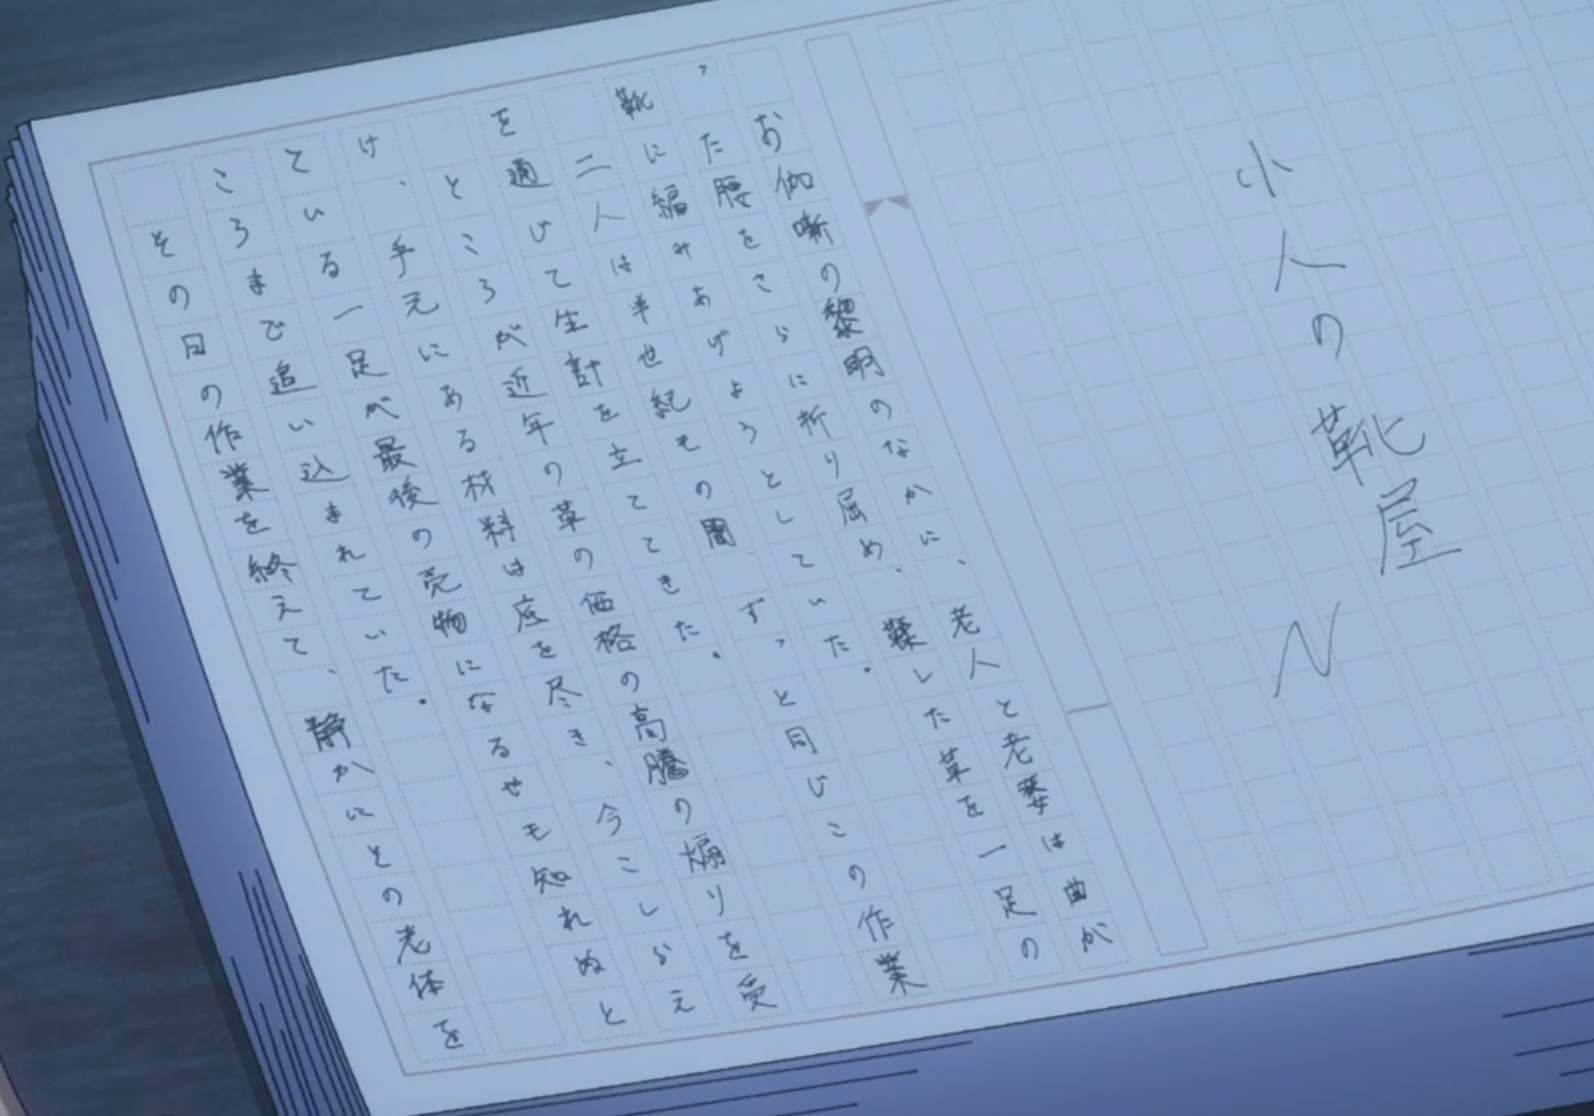 小人の靴屋
N
お伽噺の黎明のなかに、老人と老婆は曲が
った腰をさらに折り屈め、鞣した革を一足の
靴に編みあげようとしていた。
二人は半世紀もの間、ずっと同じこの作業
を通じて生計を立ててきた。
ところが近年の革の価格の高騰の煽りを受
け、手元にある材料は底を尽き、今こしらえ
ている一足が最後の売物になるやも知れぬと
ころまで追い込まれていた。
その日の作業を終えて、静かにその老体を